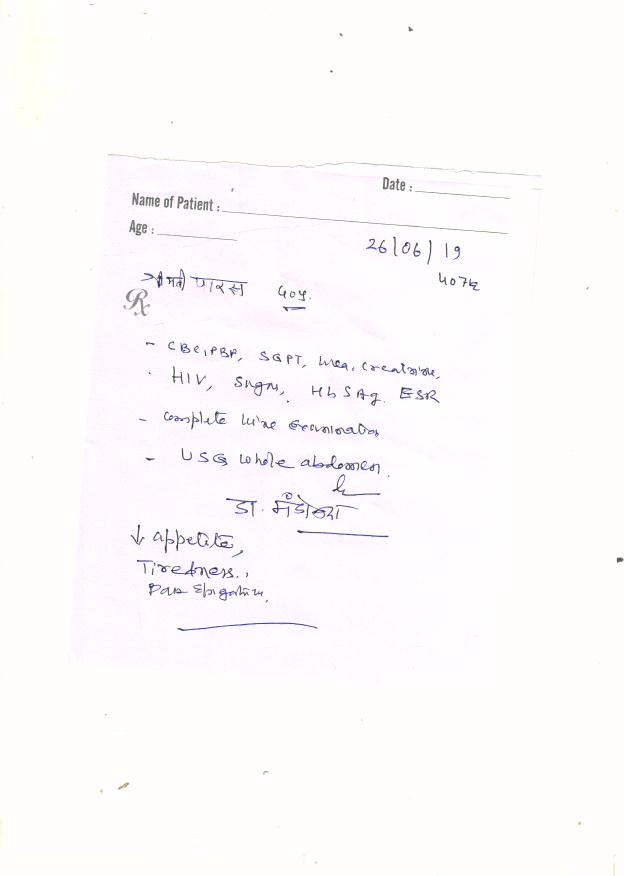 Date :
Name of Patient :
Age :
26/06/19
श्रीमती पारस 40y.
Rx
- CBC, PBF, SGPT, Urea, Creatinine,
HIV, Sugar, HbSAg. ESR
- Complete Urine Examination
- USG whole abdomen.
डा.
↓ appetite,
Tiredness.,
Pain Epigastric.